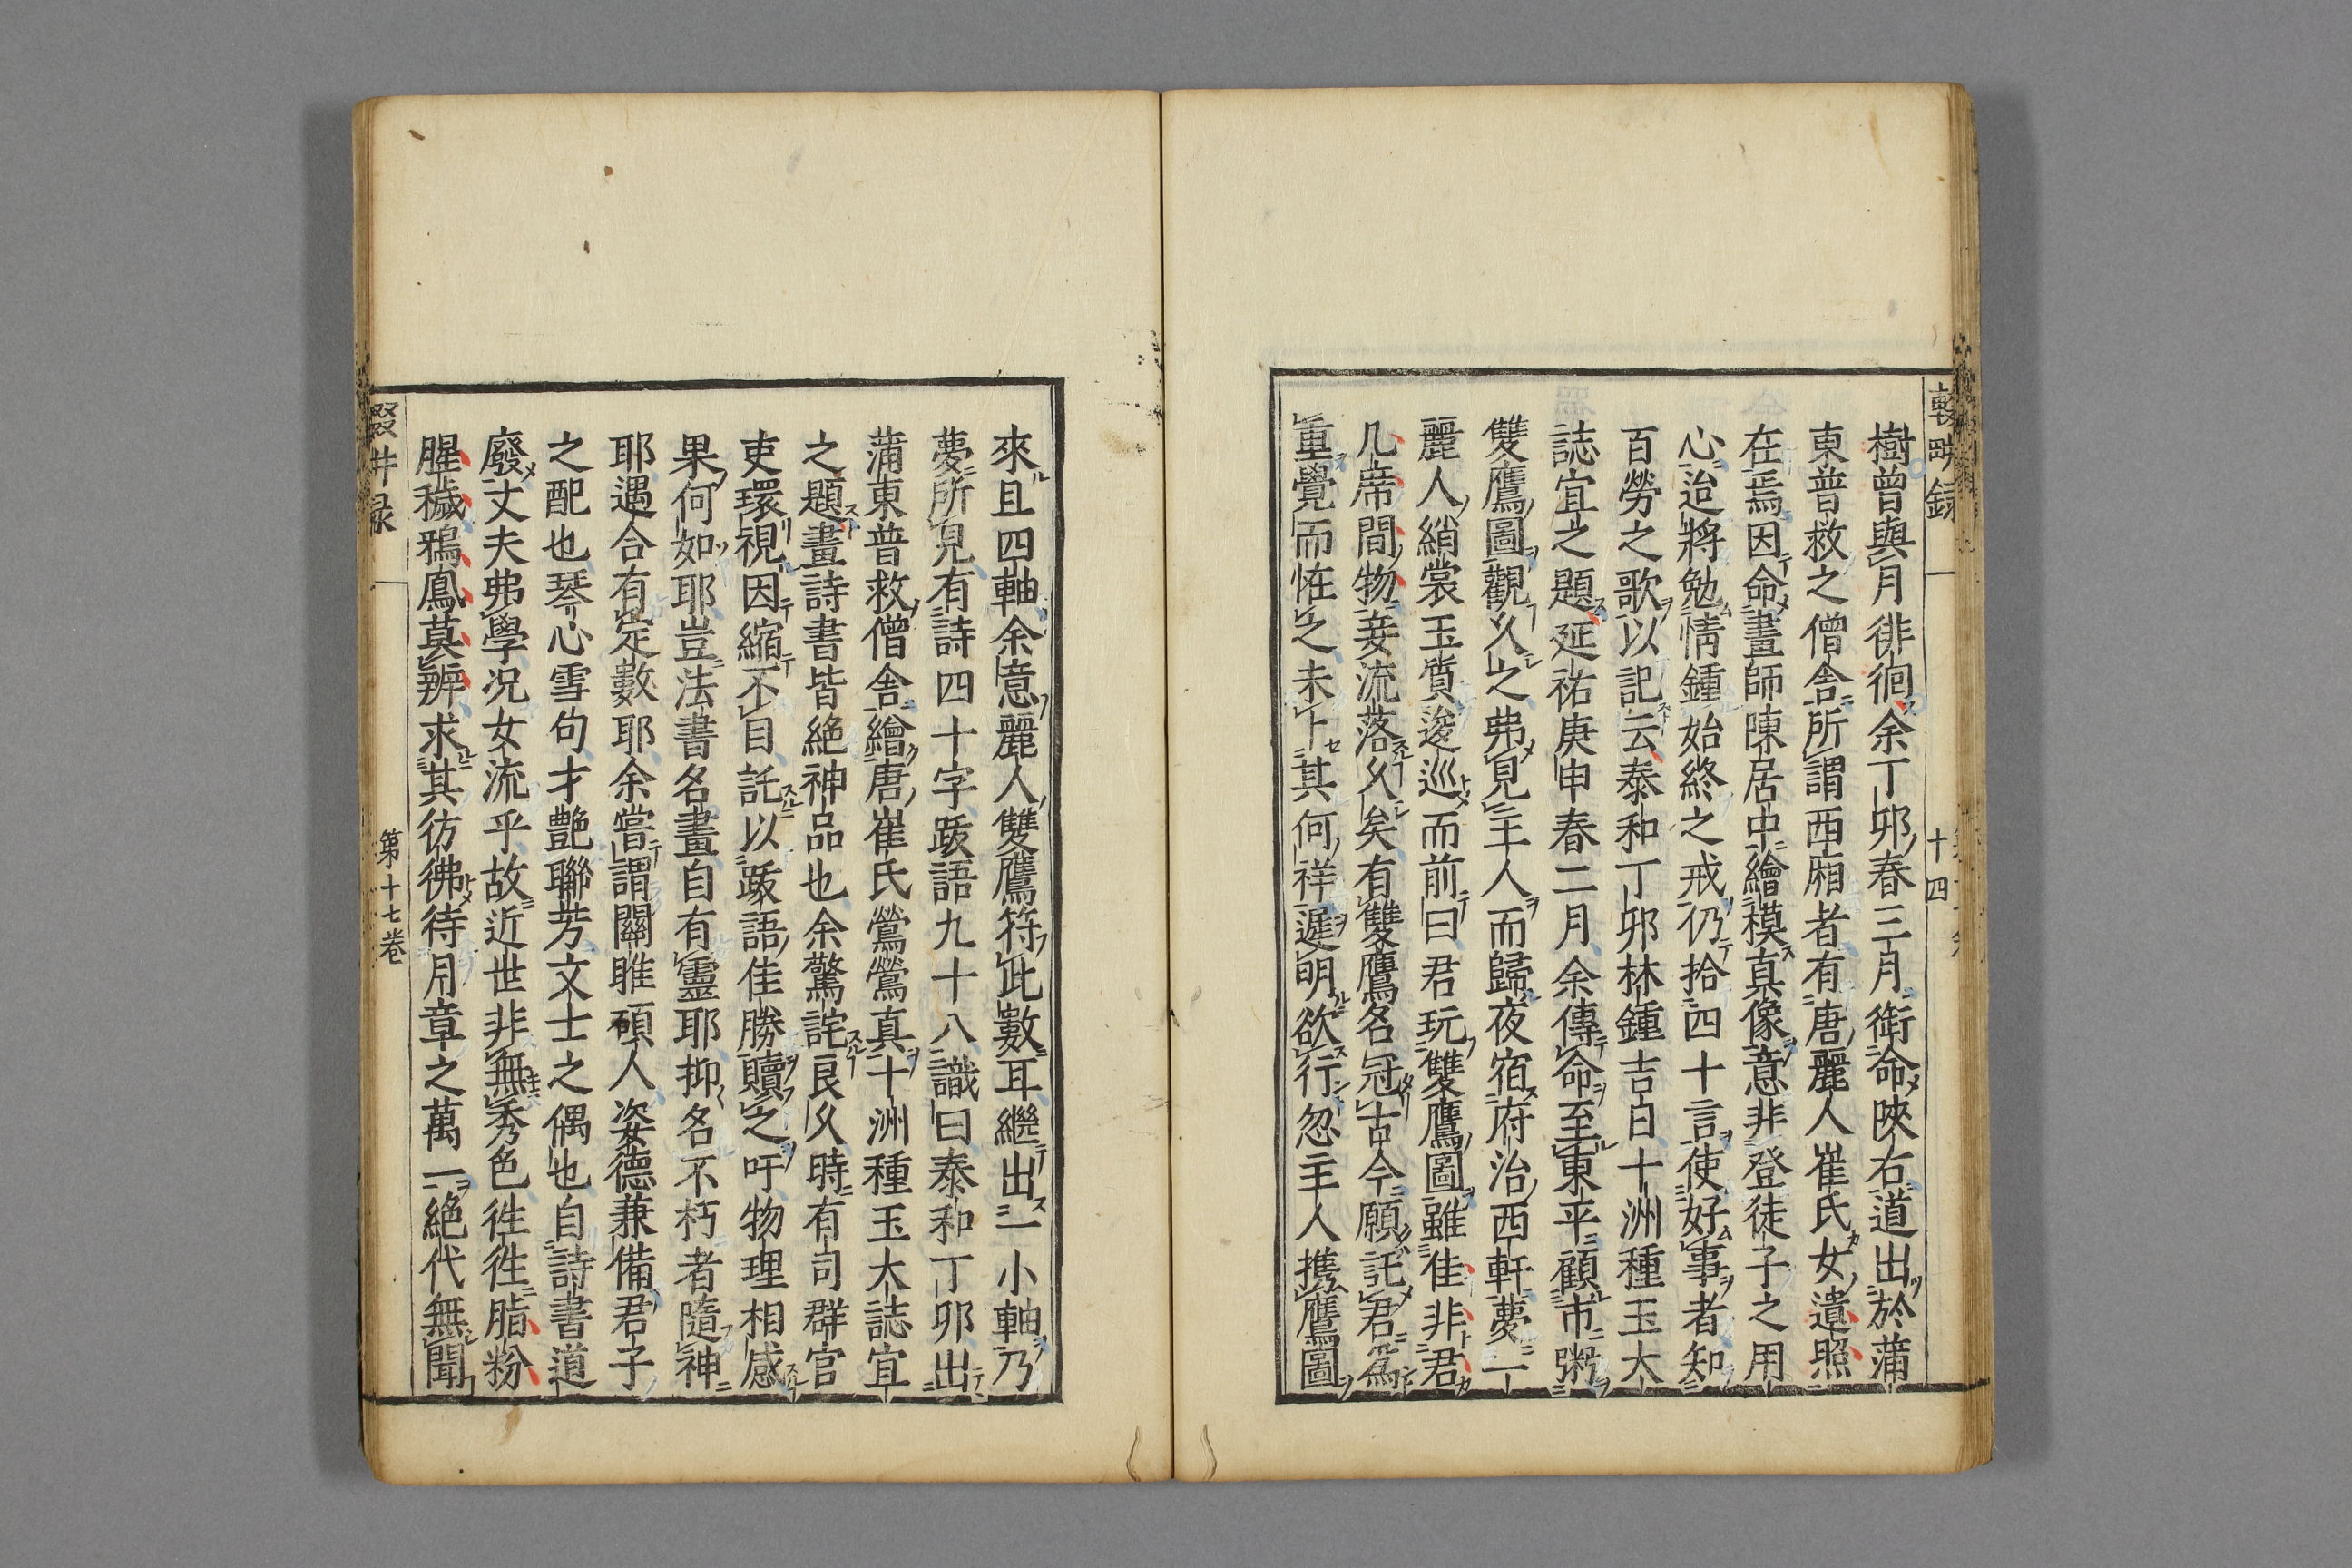 樹曾與月徘徊余丁卯春三月銜命陝右道出於蒲
東普救之僧舎所謂西廂者有唐麗人崔氏女遺照
在焉因命畫師陳居中繪模真像意非登徒子之用
心迨將勉情鍾始終之戒仍拾四十言使好事者知
百勞之歌以記云泰和丁卯林鍾吉日十洲種玉大
誌宜之題延祐庚申春二月余傳命至東平顧市粥
雙鷹圖觀久之弗見主人而歸夜宿府治西軒夢一
麗人綃裳玉質逡巡而前曰君玩雙鷹圖雖佳非君
几席間物妾流落久矣有雙鷹名冠古今願託君爲
重覺而恠之未卜其何祥遲明欲行忽主人携鷹圖
來且四軸余意麗人雙鷹符此數耳繼出一小軸乃
夢所見有詩四十字跋語九十八識曰泰和丁卯出
蒲東普救僧舎繪唐崔氏鶯鶯真十洲種玉大誌宜
之題畫詩書皆絶神品也余驚詫良久時有司群官
吏環視因縮不目託以跋語佳勝贖之吁物理相感
果何如耶豈法書名畫自有靈耶抑名不朽者隨神
耶遇合有定數耶余嘗謂關雎碩人姿德兼備君子
之配也琴心雪句才艶聯芳文士之偶也自詩書道
廢丈夫弗學况女流乎故近世非無秀色徃徃脂粉
腥穢鴉鳳莫辨求其彷彿待月章之萬一絶代無聞
十四
第十七卷